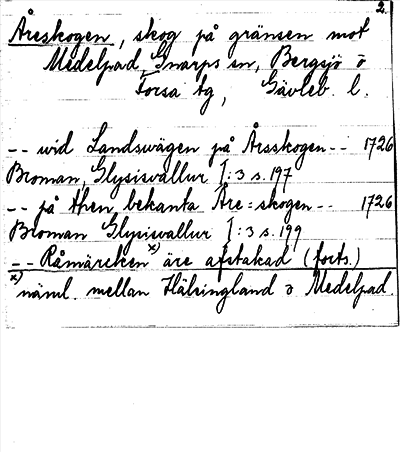 2.
Åreskogen, skog på gränsen mot
Medelpad, Gnarps sn, Bergsjö o
Forsa tg, Gävleb. l.
-- wid Landswägen på Årsskogen-- 1726
Broman, Glysiswallur I: 3 s. 197
-- på then bekanta Åre=skogen-- 1726
Broman Glysiswallur I: 3 s. 199
-- Råmärcken x) äre afstakad (forts.)
x) näml. mellan Hälsingland o Medelpad.